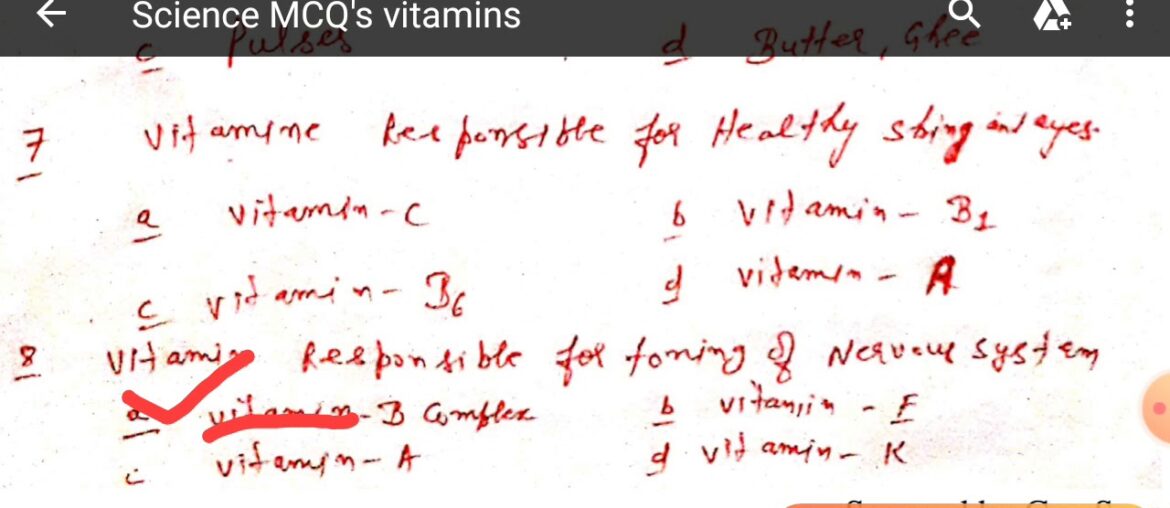 Science MCQ's vitamins
c Pulses d Butter, Ghee
7 vitamine Responsible for Healthy sking and eyes.
a vitamin-C b vitamin- B1
c vitamin- B6 d vitamin- A
8 vitamin Responsible for toning of Nervous system
a vitamin-B Complex b vitamin - E
c vitamin-A d vitamin- K